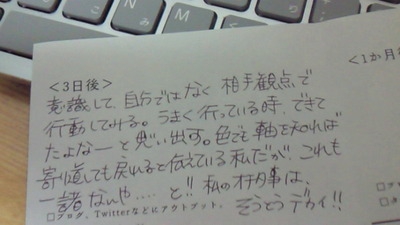 <3日後>
<1か月
意識して、自分ではなく 相手観点で
行動してみる。うまく行っている時、できて
たよなーと思い出す。色でも軸を知れば
寄り道しても戻れると伝えている私だが、これも
一諸なんや.... と!! 私の仕事は、
□ブログ、Twitterなどにアウトプット。
そうとうデカイ!!